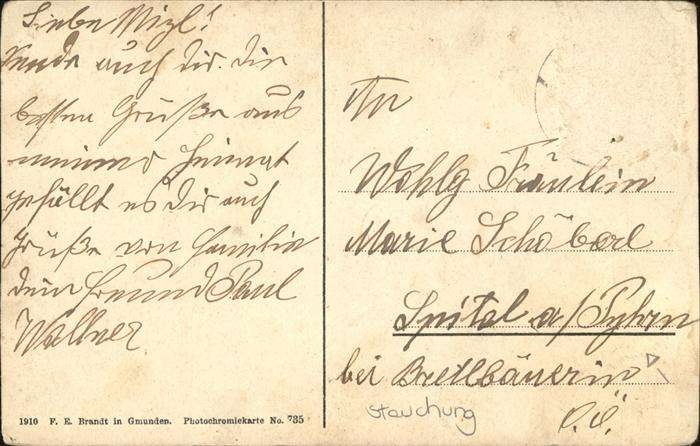 Liebe Mizl!
Sende auch dir die
besten Grüße aus
meiner Heimat
gefällt es dir auch
Grüße von Familie
dein Freund Paul
Wallner
1910 F. E. Brandt in Gmunden. Photochromiekarte No. 735
An
Wohlg Fräulein
Marie Schöberl
Spital a/Pyhrn
bei Bretlbäuerin
Stauchung
O.Ö.